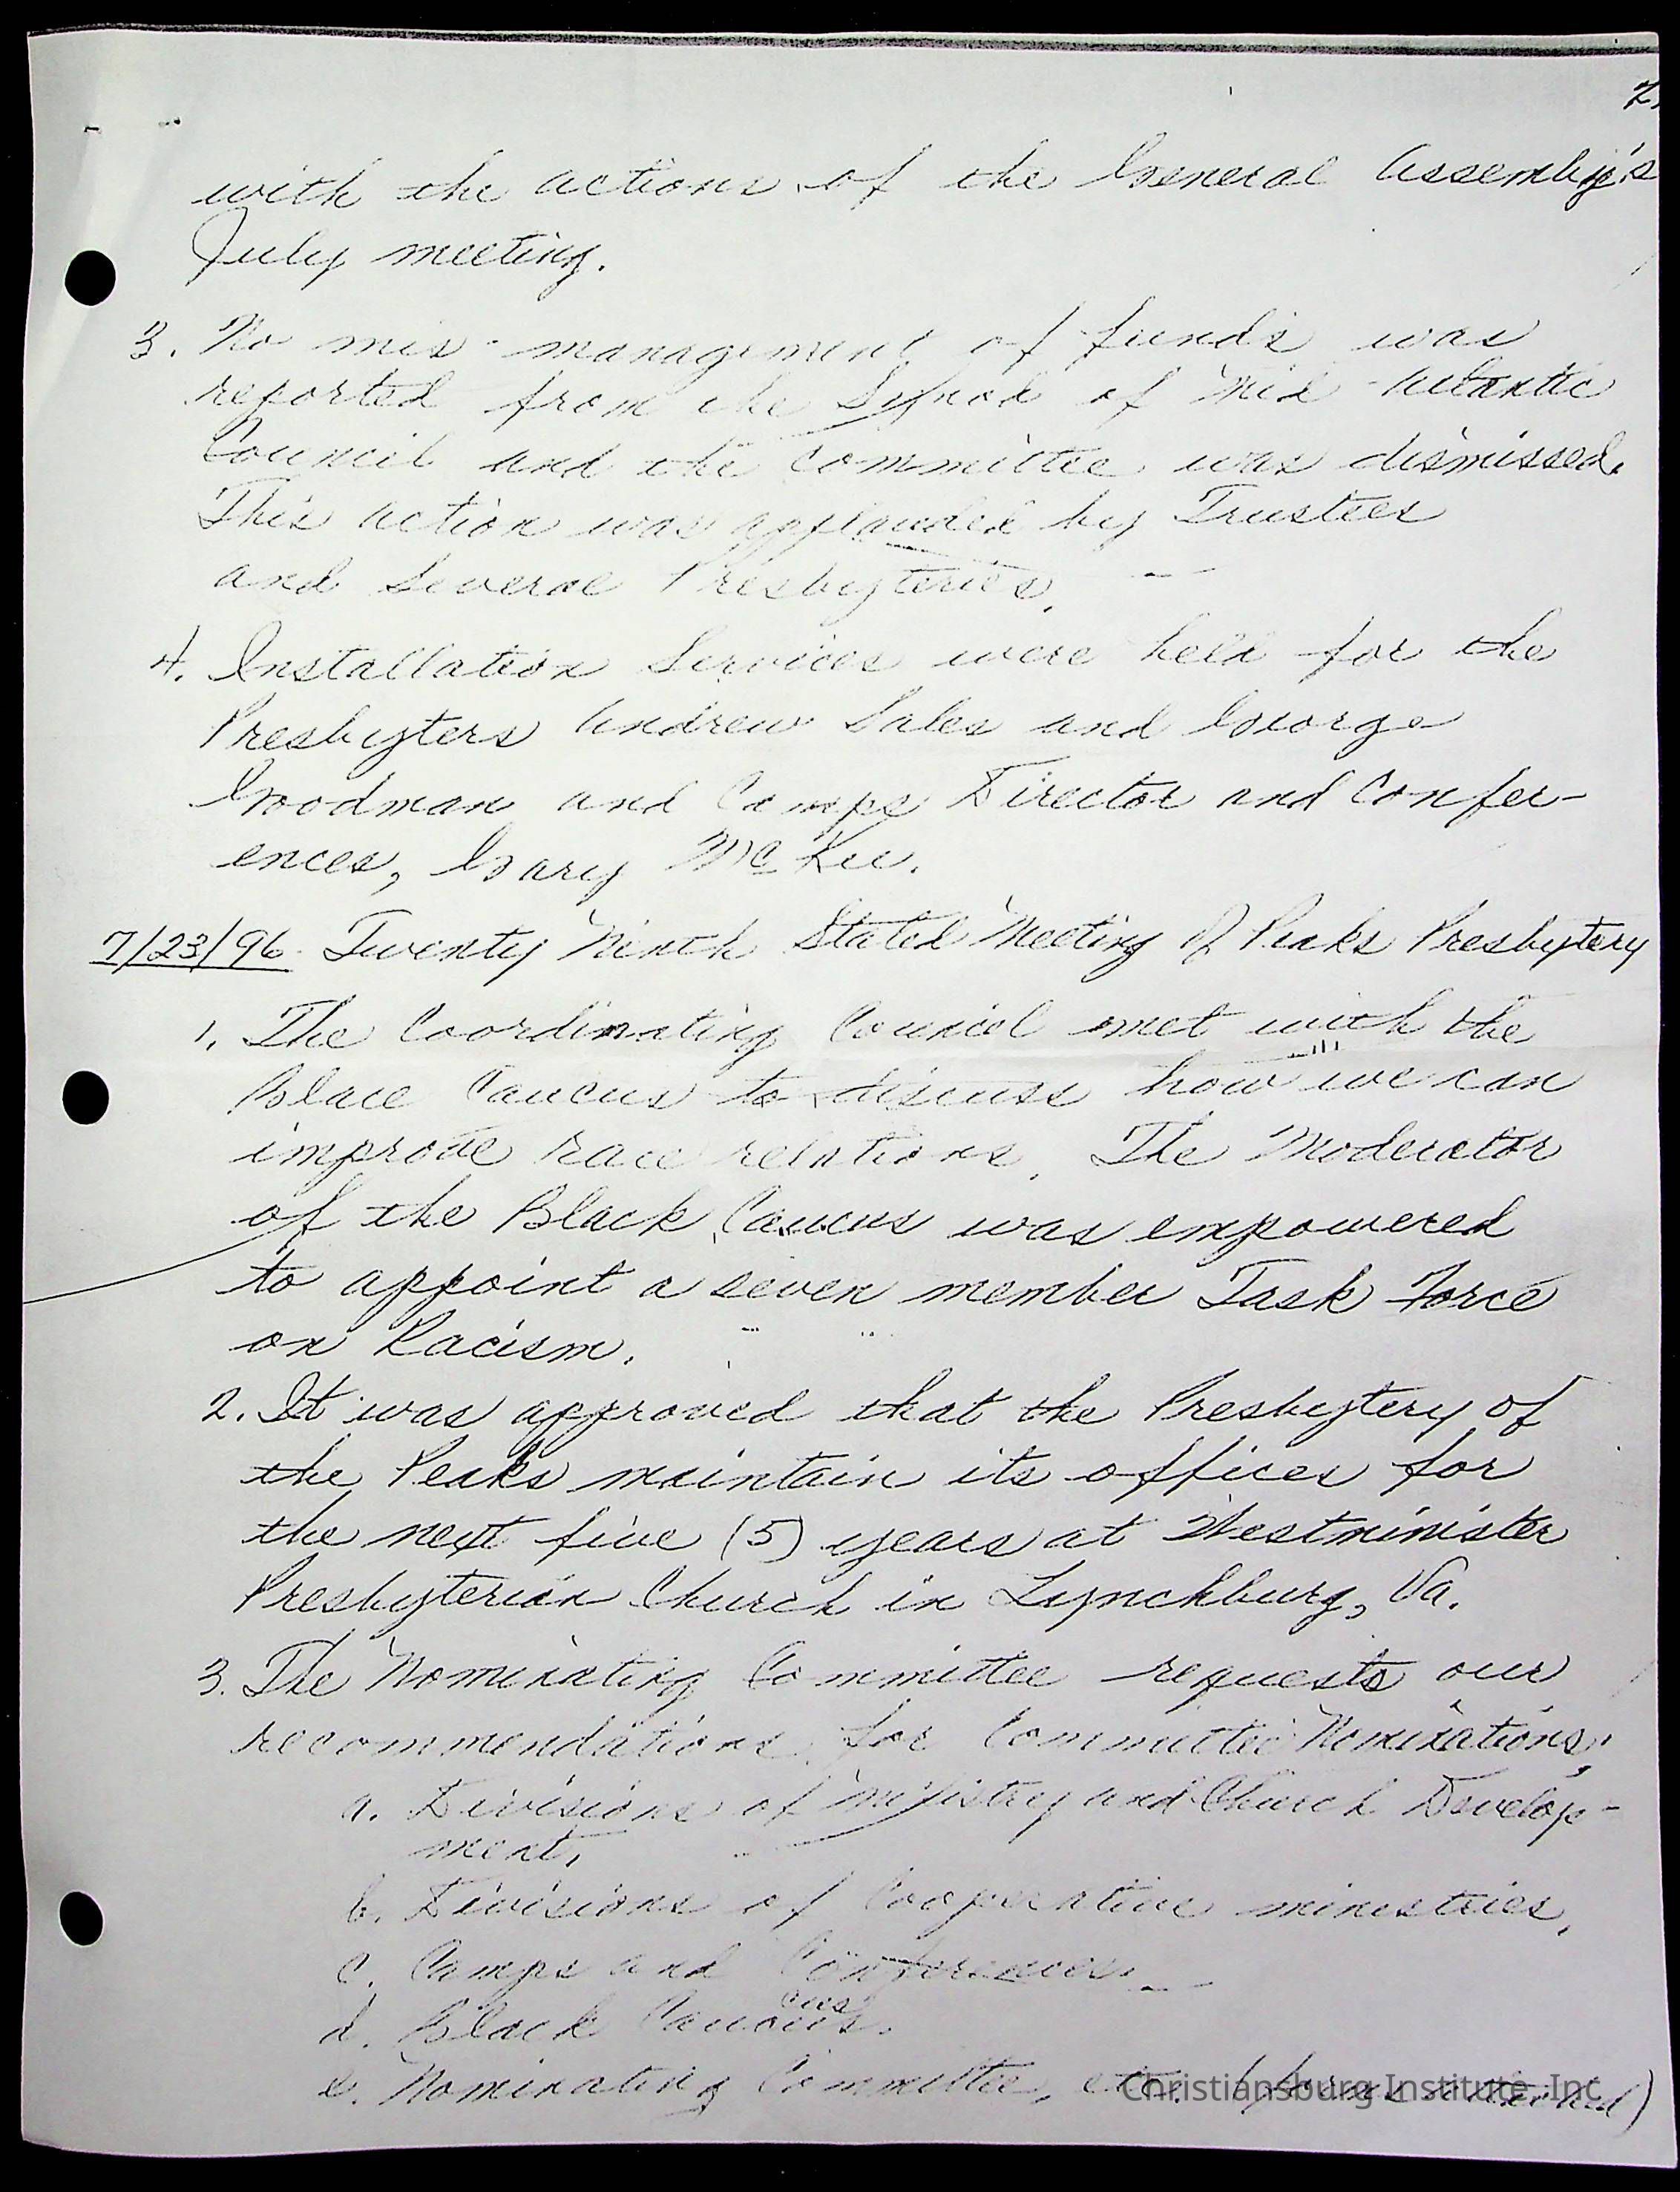 2.
with the actions of the General Assembly's
July meeting.
3. No mis-management of funds was
reported from the Synod of Mid-Atlantic
Council and the committee was dismissed.
This action was applauded by Trustees
and several Presbyteries.
4. Installation Services were held for the
Presbyters Andrew Sales and George
Goodman and Camps Director and Confer-
ences, Gary McKee.
7/23/96 Twenty Ninth Stated Meeting of Peaks Presbytery
1. The Coordinating Council met with the
Black Caucus to discuss how we can
improve race relations. The Moderator
of the Black Caucus was empowered
to appoint a seven member Task Force
on Racism.
2. It was approved that the Presbytery of
the Peaks maintain its offices for
the next five (5) years at Westminister
Presbyterian Church in Lynchburg, Va.
3. The Nominating Committee requests our
recommendations for Committee Nominations,
a. Divisions of Ministry and Church Develop-
ment,
b. Divisions of Cooperative ministries,
c. Camps and Conferences.
d. Black Caucus.
e. Nominating Committee, etc.
Christiansburg Institute, Inc